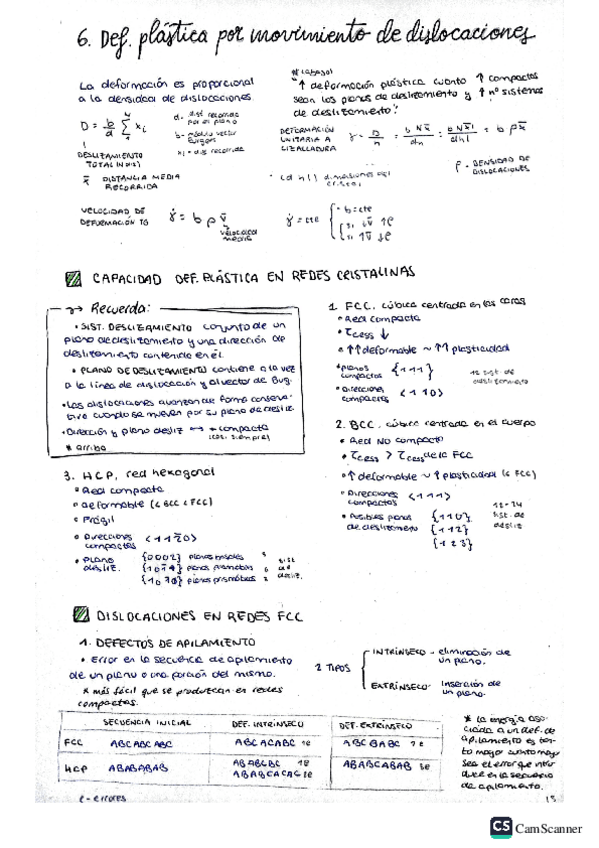 6. Def. plástica por movimiento de dislocaciones
La deformación es proporcional
a la densidad de dislocaciones.
D = b/d Σ xi
d = dist recorrida por el plano
b = módulo vector Burgers
xi = dist recorrida
DESLIZAMIENTO
TOTAL
x̄ DISTANCIA MEDIA
RECORRIDA
"↑ deformación plástica cuanto ↑ compactos
sean los planos de deslizamiento y ↑ nº sistemas
de deslizamiento"
DEFORMACIÓN
UNITARIA A
CIZALLADURA
γ = D/h = b N x̄ / dh = b N x̄ l / dhl = b ρ x̄
ρ - DENSIDAD DE
DISLOCACIONES
(d h l) dimensiones del
cristal
VELOCIDAD DE
DEFORMACIÓN TG
γ̇ = b ρ v̄
velocidad
media
γ̇ = cte
- b = cte
↓v̄ ↑ρ
↑v̄ ↓ρ
CAPACIDAD DEF. PLÁSTICA EN REDES CRISTALINAS
→ Recuerda:
• SIST. DESLIZAMIENTO conjunto de un
plano de deslizamiento y una dirección de
deslizamiento contenido en él.
• PLANO DE DESLIZAMIENTO contiene a la vez
a la línea de dislocación y al vector de Bug.
• Las dislocaciones avanzan de forma conserva-
tiva cuando se mueven por su plano de desliz.
• Dirección y plano desliz ↔ + compacta
(casi siempre)
* arriba
1. FCC, cúbica centrada en las caras
• Red compacta
• τcess ↓
• ↑↑ deformable ~ ↑↑ plasticidad
• planos
compactos {111}
12 sist. de
deslizamiento
• Direcciones
compactas <110>
2. BCC, cúbica centrada en el cuerpo
• Red NO compacta
• τcess > τcess de la FCC
• ↑ deformable ~ ↑ plasticidad (< FCC)
• Direcciones
compactas <111>
• Posibles planos
de deslizamiento
{110}
{112}
{123}
12-24
sist. de
desliz
3. HCP, red hexagonal
• Red compacta
• deformable (< BCC < FCC)
• Frágil
• Direcciones
compactas <112̄0>
• Plano
desliz.
{0002} planos basales 3
{101̄1} planos piramidales 6
{101̄0} planos prismáticos 3
sist
de
desliz.
DISLOCACIONES EN REDES FCC
1. DEFECTOS DE APILAMIENTO
• Error en la secuencia de apilamiento
de un plano o una porción del mismo.
* más fácil que se produzcan en redes
compactas.
2 TIPOS
INTRÍNSECO - eliminación de
un plano.
EXTRÍNSECO - Inserción de
un plano.
SECUENCIA INICIAL DEF. INTRÍNSECO DEF. EXTRÍNSECO
FCC ABCABCABC ABCACABC 1e ABCBABC 2e
HCP ABABABAB ABABCBC 1e ABABCABAB 3e
ABABCACAC
e - errores
* La energía aso-
ciada a un def. de
apilamiento es tan-
to mayor cuanto mayor
sea el error que intro-
duce en la secuencia
de apilamiento.
15
CS CamScanner